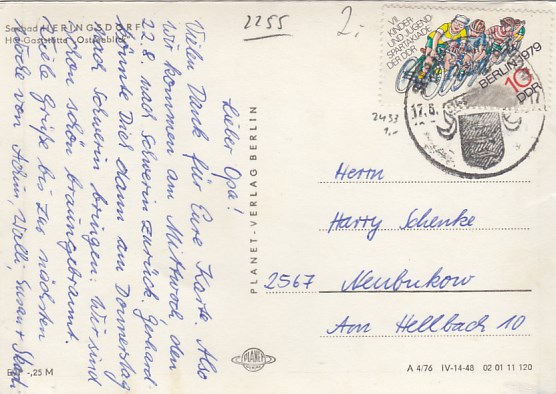 Seebad HERINGSDORF
HO-Gaststätte Ostseeblick
2255
2,-
VII.
KINDER
UND JUGEND
SPARTAKIADE
DER DDR
BERLIN 1979
10
DDR
17.8.
2433
1,-
Lieber Opa!
Vielen Dank für Eure Karte. Also
wir kommen am Mittwoch, den
22.8. nach Schwerin zurück. Gerhard
könnte Dich dann am Donnerstag
nach Schwerin bringen. Wir sind
schon schön braungebrannt.
Viele Grüße bis zur nächsten
Woche von Achim, Walli,
PLANET-VERLAG BERLIN
Herrn
Harry Schenke
2567 Neubukow
Am Hellbach 10
EVP -,25 M
PLANET
A 4/76 IV-14-48 02 01 11 120